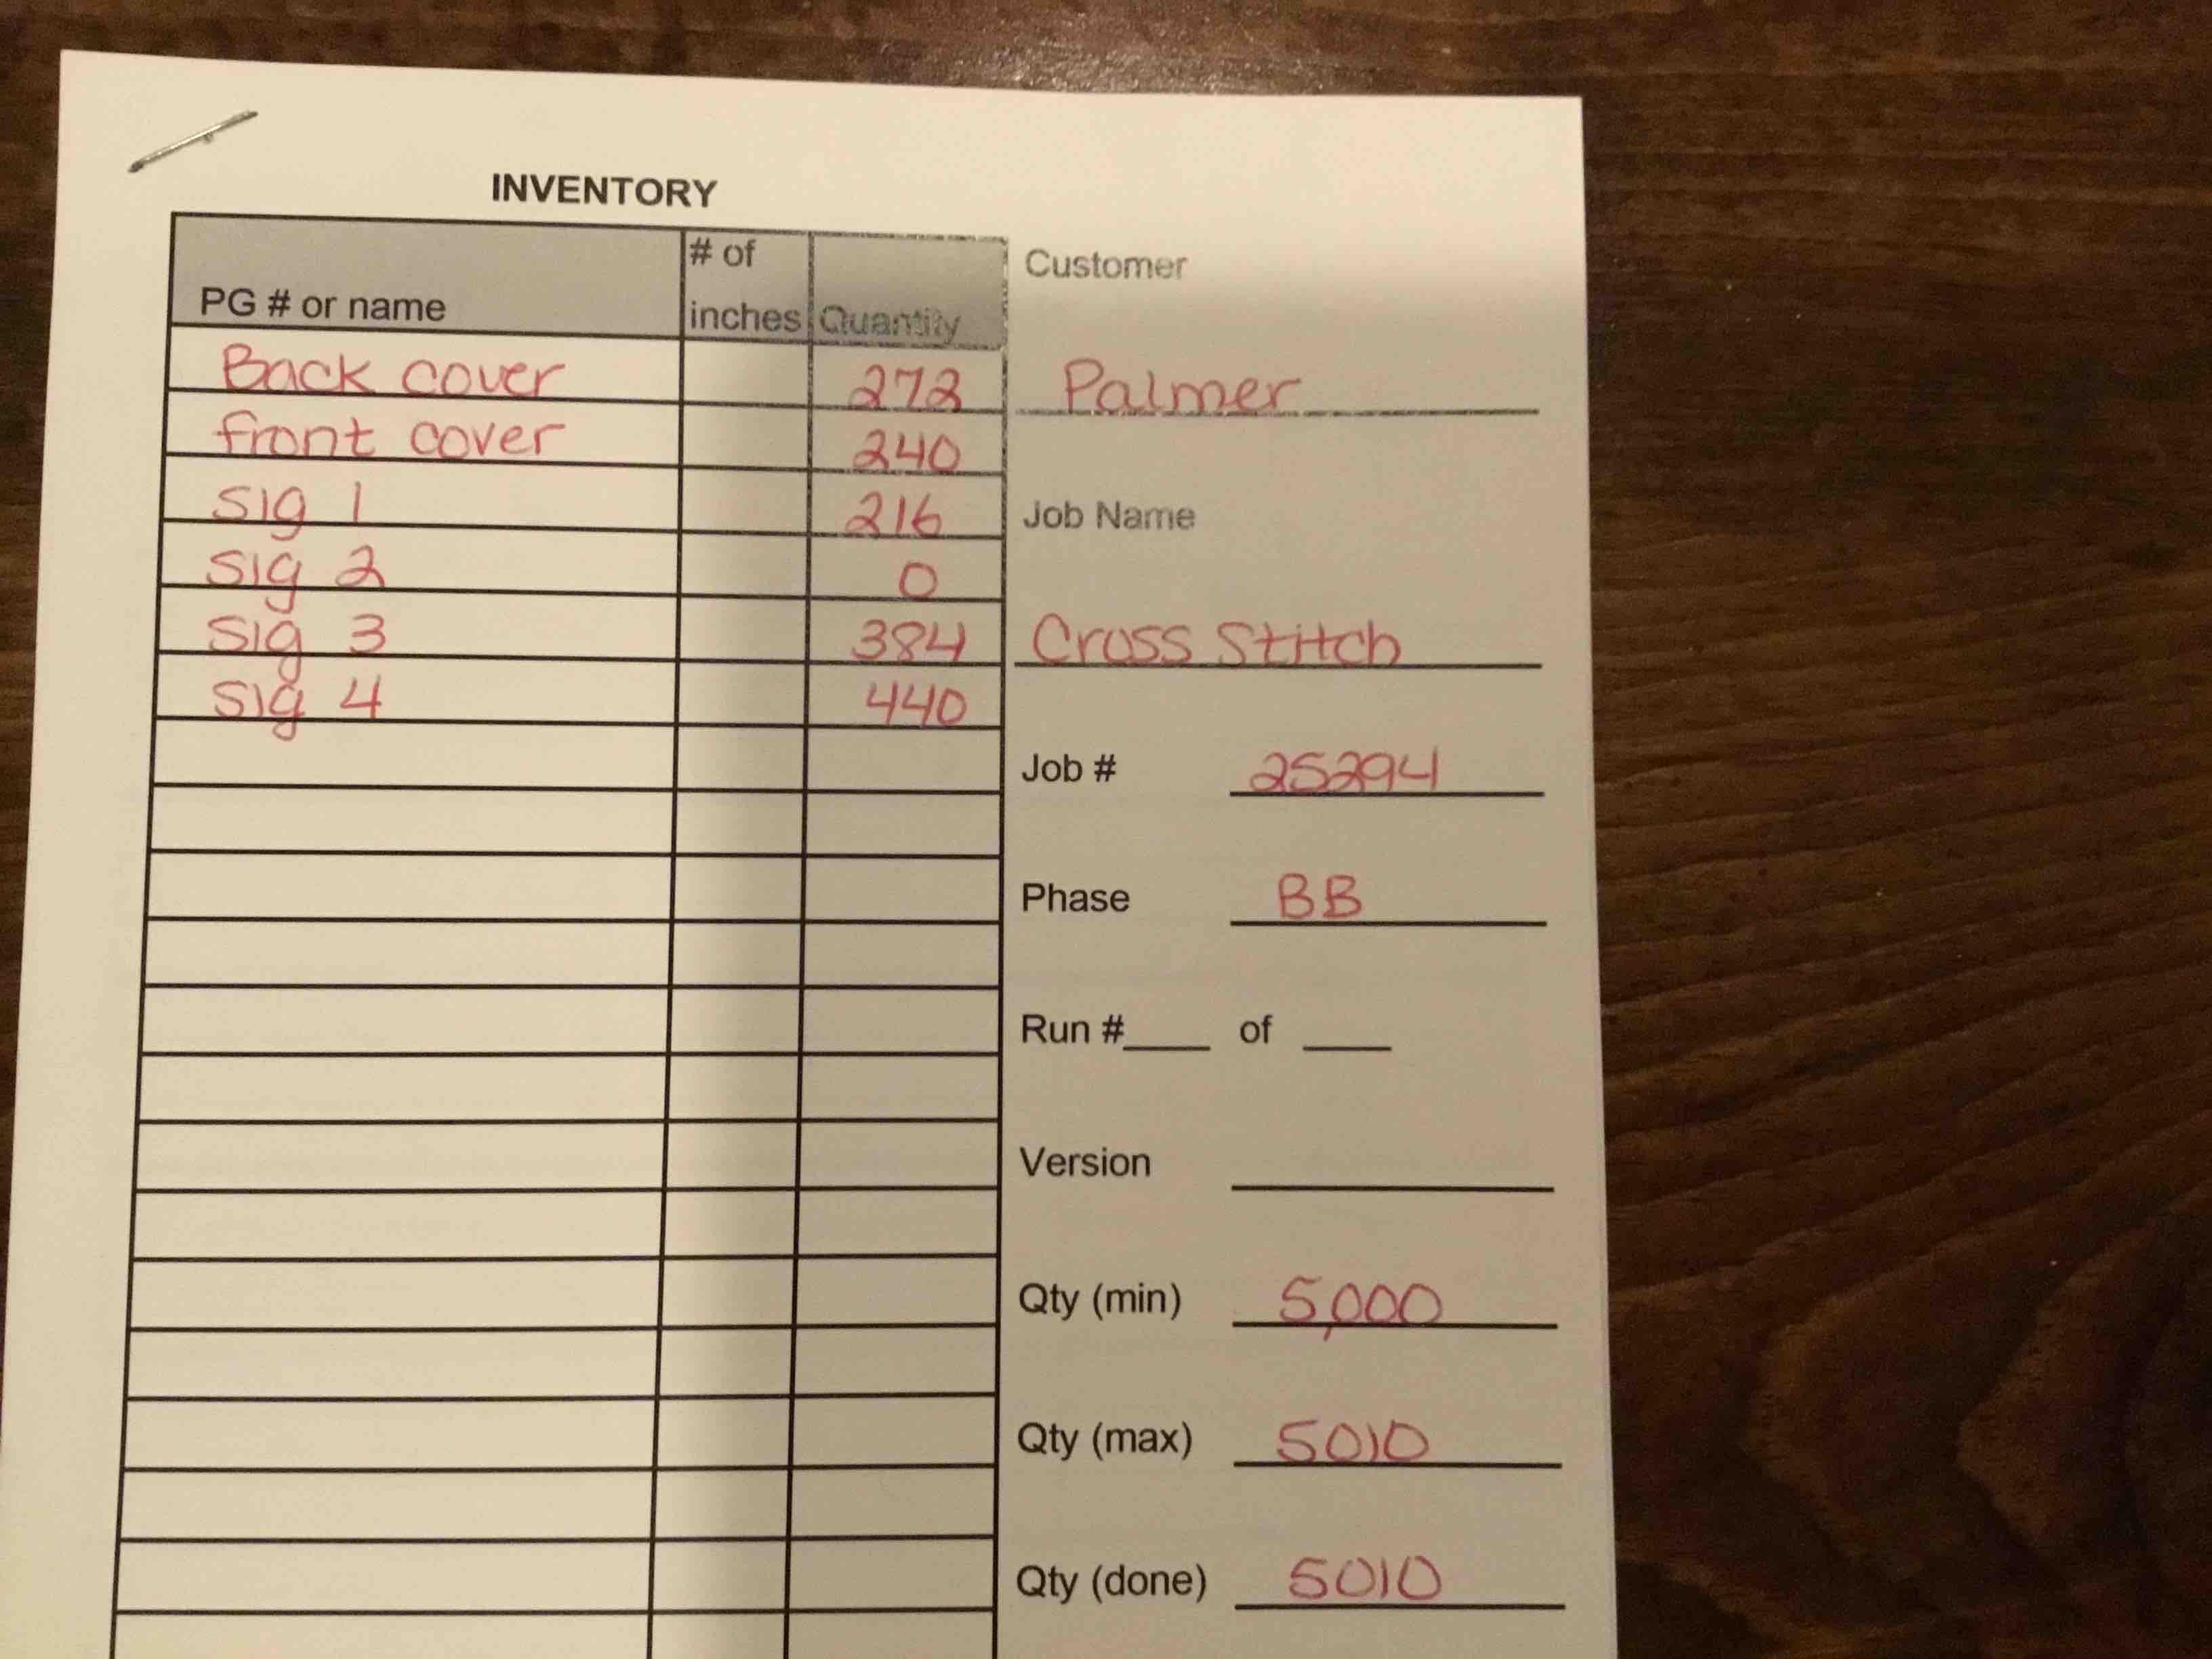 INVENTORY
PG # or name # of inches Quantity
Back cover 272
front cover 240
Sig 1 216
Sig 2 0
Sig 3 384
Sig 4 440
Customer
Palmer
Job Name
Cross Stitch
Job # 25294
Phase BB
Run #____ of ____
Version
Qty (min) 5,000
Qty (max) 5010
Qty (done) 5010